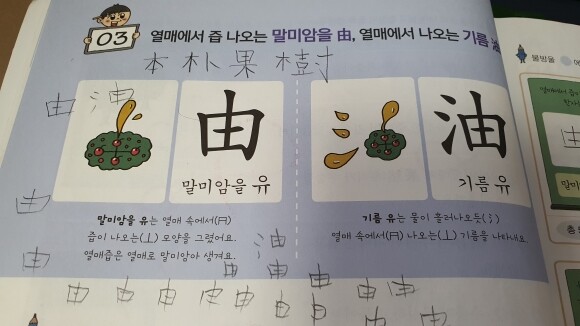 03 열매에서 즙 나오는 말미암을 由, 열매에서 나오는 기름 油
本 朴 果 樹
由 油
由 油
말미암을 유 기름 유
由
말미암을 유는 열매 속에서(冂)
즙이 나오는(丄) 모양을 그렸어요.
열매즙은 열매로 말미암아 생겨요.
기름 유는 물이 흘러나오듯(氵)
열매 속에서(冂) 나오는(丄) 기름을 나타내요.
油
由 由 由 由
由 由 由 由 由 由 由 油
由 由
물방울
말미